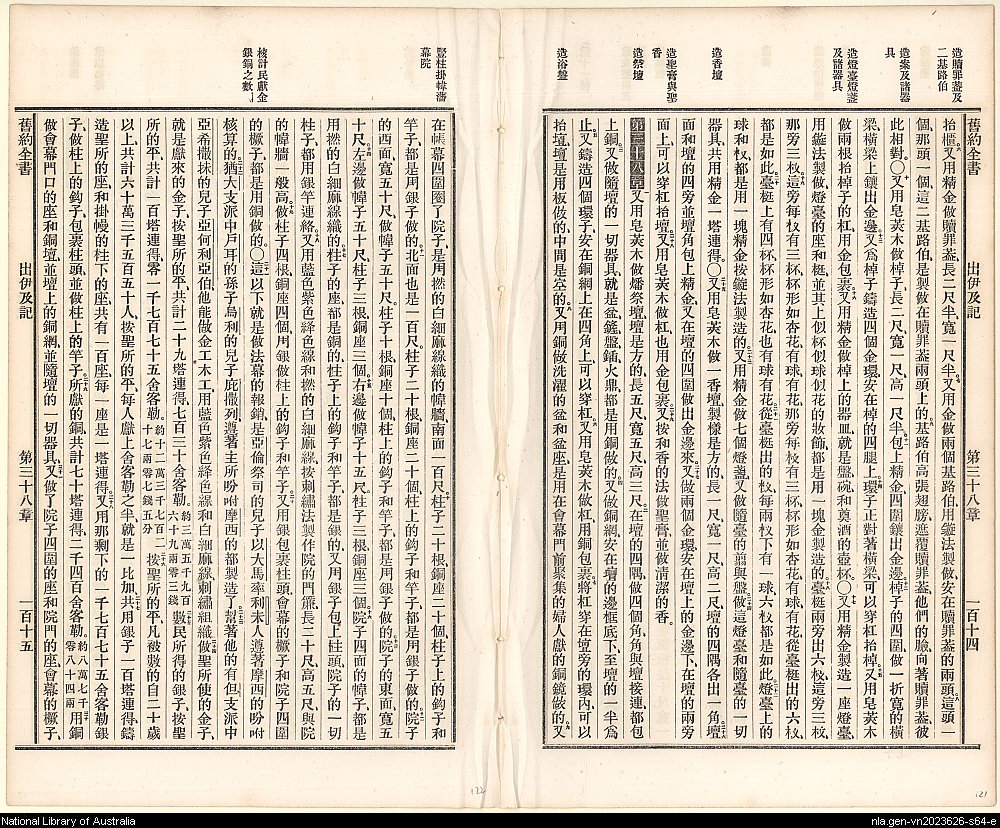 造贖罪蓋及
二基路伯
造案及諸器
具
造燈臺燈盞
及諸器具
造香壇
造聖膏與聖
香
造祭壇
造浴盤
舊約全書 出伊及記 第三十八章 一百十四
抬櫃又用精金做贖罪蓋長二尺半寬一尺半又用金做兩個基路伯用鏇法製做安在贖罪蓋的兩頭這頭一
個那頭一個這二基路伯是製做在贖罪蓋兩頭上的基路伯高張翅膀遮覆贖罪蓋他們的臉向著贖罪蓋彼
此相對〇又用皂莢木做棹子長二尺寬一尺高一尺半包上精金四圍鑲出金邊棹子的四圍做一折寬的橫
梁橫梁上鑲出金邊又為棹子鑄造四個金環安在棹的四腿上環子正對著橫梁可以穿杠抬棹又用皂莢木
做兩根抬棹子的杠用金包裹又用精金做棹上的器皿就是盤碗和奠酒的壺杯〇又用精金製造一座燈臺
用鏇法製做燈臺的座和梃並其上似杯似球似花的妝飾都是用一塊金製造的臺梃兩旁出六杈這旁三杈
那旁三杈這旁每杈有三杯杯形如杏花有球有花那旁每杈有三杯杯形如杏花有球有花從臺梃出的六杈
都是如此臺梃上有四杯杯形如杏花也有球有花從臺梃出的杈每兩杈下有一球六杈都是如此燈臺上的
球和杈都是用一塊精金按鏇法製造的又用精金做七個燈盞又做隨臺的剪與盤做這燈臺和隨臺的一切
器具共用精金一塔連得〇又用皂莢木做一香壇製樣是方的長一尺寬一尺高二尺壇的四隅各出一角壇
面和壇的四旁並壇角包上精金又在壇的四圍做出金邊來又做兩個金環安在壇上的金邊下在壇的兩旁
面上可以穿杠抬壇又用皂莢木做杠也用金包裹又按和香的法做聖膏並做清潔的香
第三十八章 又用皂莢木做燔祭壇壇是方的長五尺寬五尺高三尺在壇的四隅做四個角角與壇接連都包
上銅又做隨壇的一切器具就是盆鏟盤鍤火鼎都是用銅做的又做銅網安在壇的邊框底下至壇的一半為
止又鑄造四個環子安在銅網上在四角上可以穿杠又用皂莢木做杠用銅包裹將杠穿在壇旁的環內可以
抬壇壇是用板做的中間是空的又用銅做洗濯的盆和盆座是用在會幕門前聚集的婦人獻的銅鏡做的又
豎柱掛幃牆
幕院
核計民獻金
銀銅之數
在帳幕四圍圈了院子是用撚的白細麻線織的幃牆南面一百尺柱子二十根銅座二十個柱子上的鈎子和
竿子都是用銀子做的北面也是一百尺柱子二十根銅座二十個柱上的鈎子和竿子都是用銀子做的院子
的西面寬五十尺做幃子五十尺柱子十根銅座十個柱上的鈎子和竿子都是用銀子做的院子的東面寬五
十尺左邊做幃子五十尺柱子三根銅座三個右邊做幃子十五尺柱子三根銅座三個院子四面的幃子都是
用撚的白細麻線織的柱子的座都是銅的柱子上的鈎子和竿子都是銀的又用銀子包上柱頭院子的一切
柱子都用銀竿連絡又用藍色紫色絳色線和撚的白細麻線按刺繡法製作院的門簾長二十尺高五尺與院
的幃牆一般高做柱子四根銅座四個用銀做柱上的鈎子和竿子又用銀包裹柱頭會幕的橛子和院子四圍
的橛子都是用銅做的〇這以下就是做法幕的報銷是亞倫祭司的兒子以大馬率利未人遵著摩西的吩咐
核算的猶大支派中戶耳的孫子烏利的兒子庇撒列遵著主所吩咐摩西的都製造了幫著他的有但支派中
亞希撒抹的兒子亞何利亞伯他能做金工木工用藍色紫色絳色線和白細麻線刺繡組織做聖所使的金子
就是獻來的金子按聖所的平共計二十九塔連得七百三十舍客勒約三萬五千九百六十九兩零三錢數民所得的銀子按聖
所的平共計一百塔連得零一千七百七十五舍客勒約十二萬三千七百二十七兩零七錢五分按聖所的平凡被數的自二十歲
以上共計六十萬三千五百五十人按聖所的平每人獻上舍客勒之半就是一比加共用銀子一百塔連得鑄
造聖所的座和掛幔的柱下的座共有一百座每一座是一塔連得又用那剩下的一千七百七十五舍客勒銀
子做柱上的鈎子包裹柱頭並做柱上的竿子所獻的銅共計七十塔連得二千四百舍客勒約八萬七千零八十四兩用銅
做會幕門口的座和銅壇並壇上的銅網並隨壇的一切器具又做了院子四圍的座和院門的座會幕的橛子
舊約全書 出伊及記 第三十八章 一百十五
122
121
National Library of Australia
nla.gen-vn2023626-s64-e